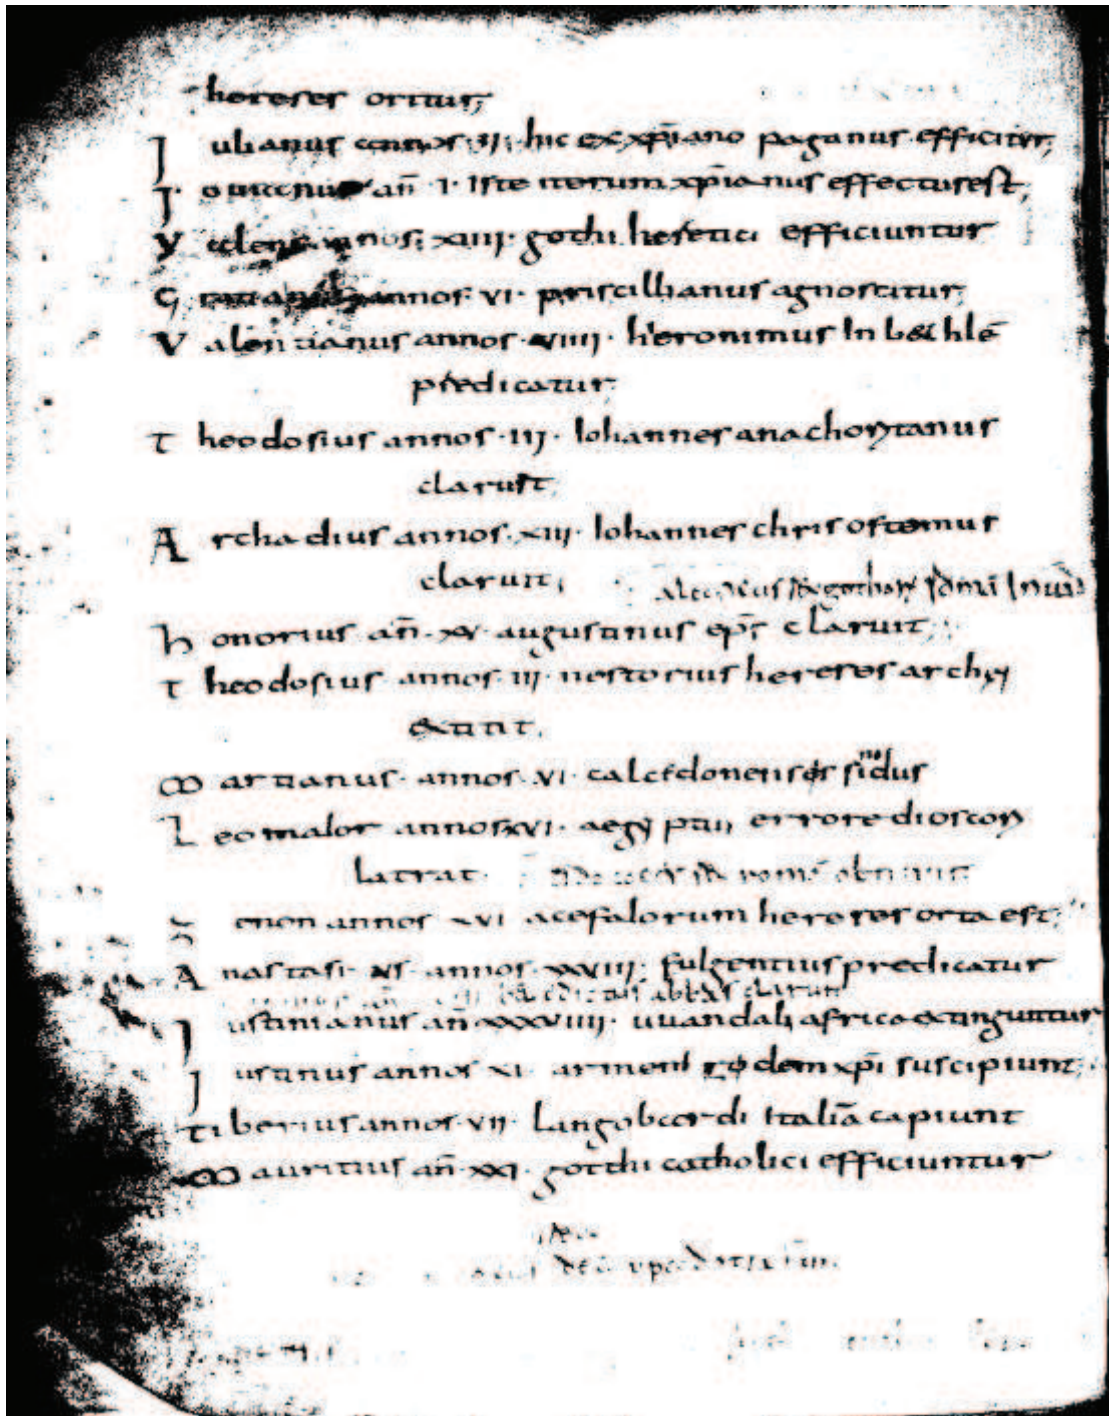 hereses oritur;
Iulianus annos ·II· hic ex xp̄iano paganus efficitur;
Iouianus an̄ ·I· Iste iterum xp̄ianus effectus est;
Valens annos ·xiiii· gothi heretici efficiuntur
Gratianus annos ·vi· priscillianus agnoscitur;
Valentianus annos ·viiii· hieronimus In bethlē
predicatur;
Theodosius annos ·iii· Iohannes anachorytanus
claruit;
Archadius annos ·xiii· Iohannes chrisostomus
claruit;
Honorius an̄ ·xv· augustinus ep̄s claruit;
Theodosius annos ·iii· nestorius hereses archi
extitit;
Martianus· annos ·vi· calcedonenses sinodus
Leo maior annos xvi· aegyptii errore dioscori
latrat·
Zenon annos xvi acefalorum hereses orta est;
Anastasius annos ·xxviii· fulgentius predicatur
benedictus abbas claruit
Iustinianus an̄ xxxviiii· uuandali africa extinguntur
Iustinus annos xi· armeni fidem xp̄i suscipiunt;
Tiberius annos ·vii· langobardi Italiā capiunt
Mauritius an̄ ·xxi· gotthi catholici efficiuntur